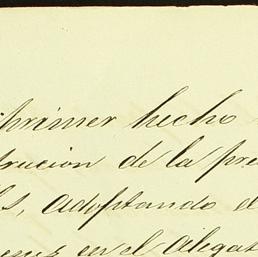 primer hecho
trucion de la pre
s, adoptando el
en el alegat